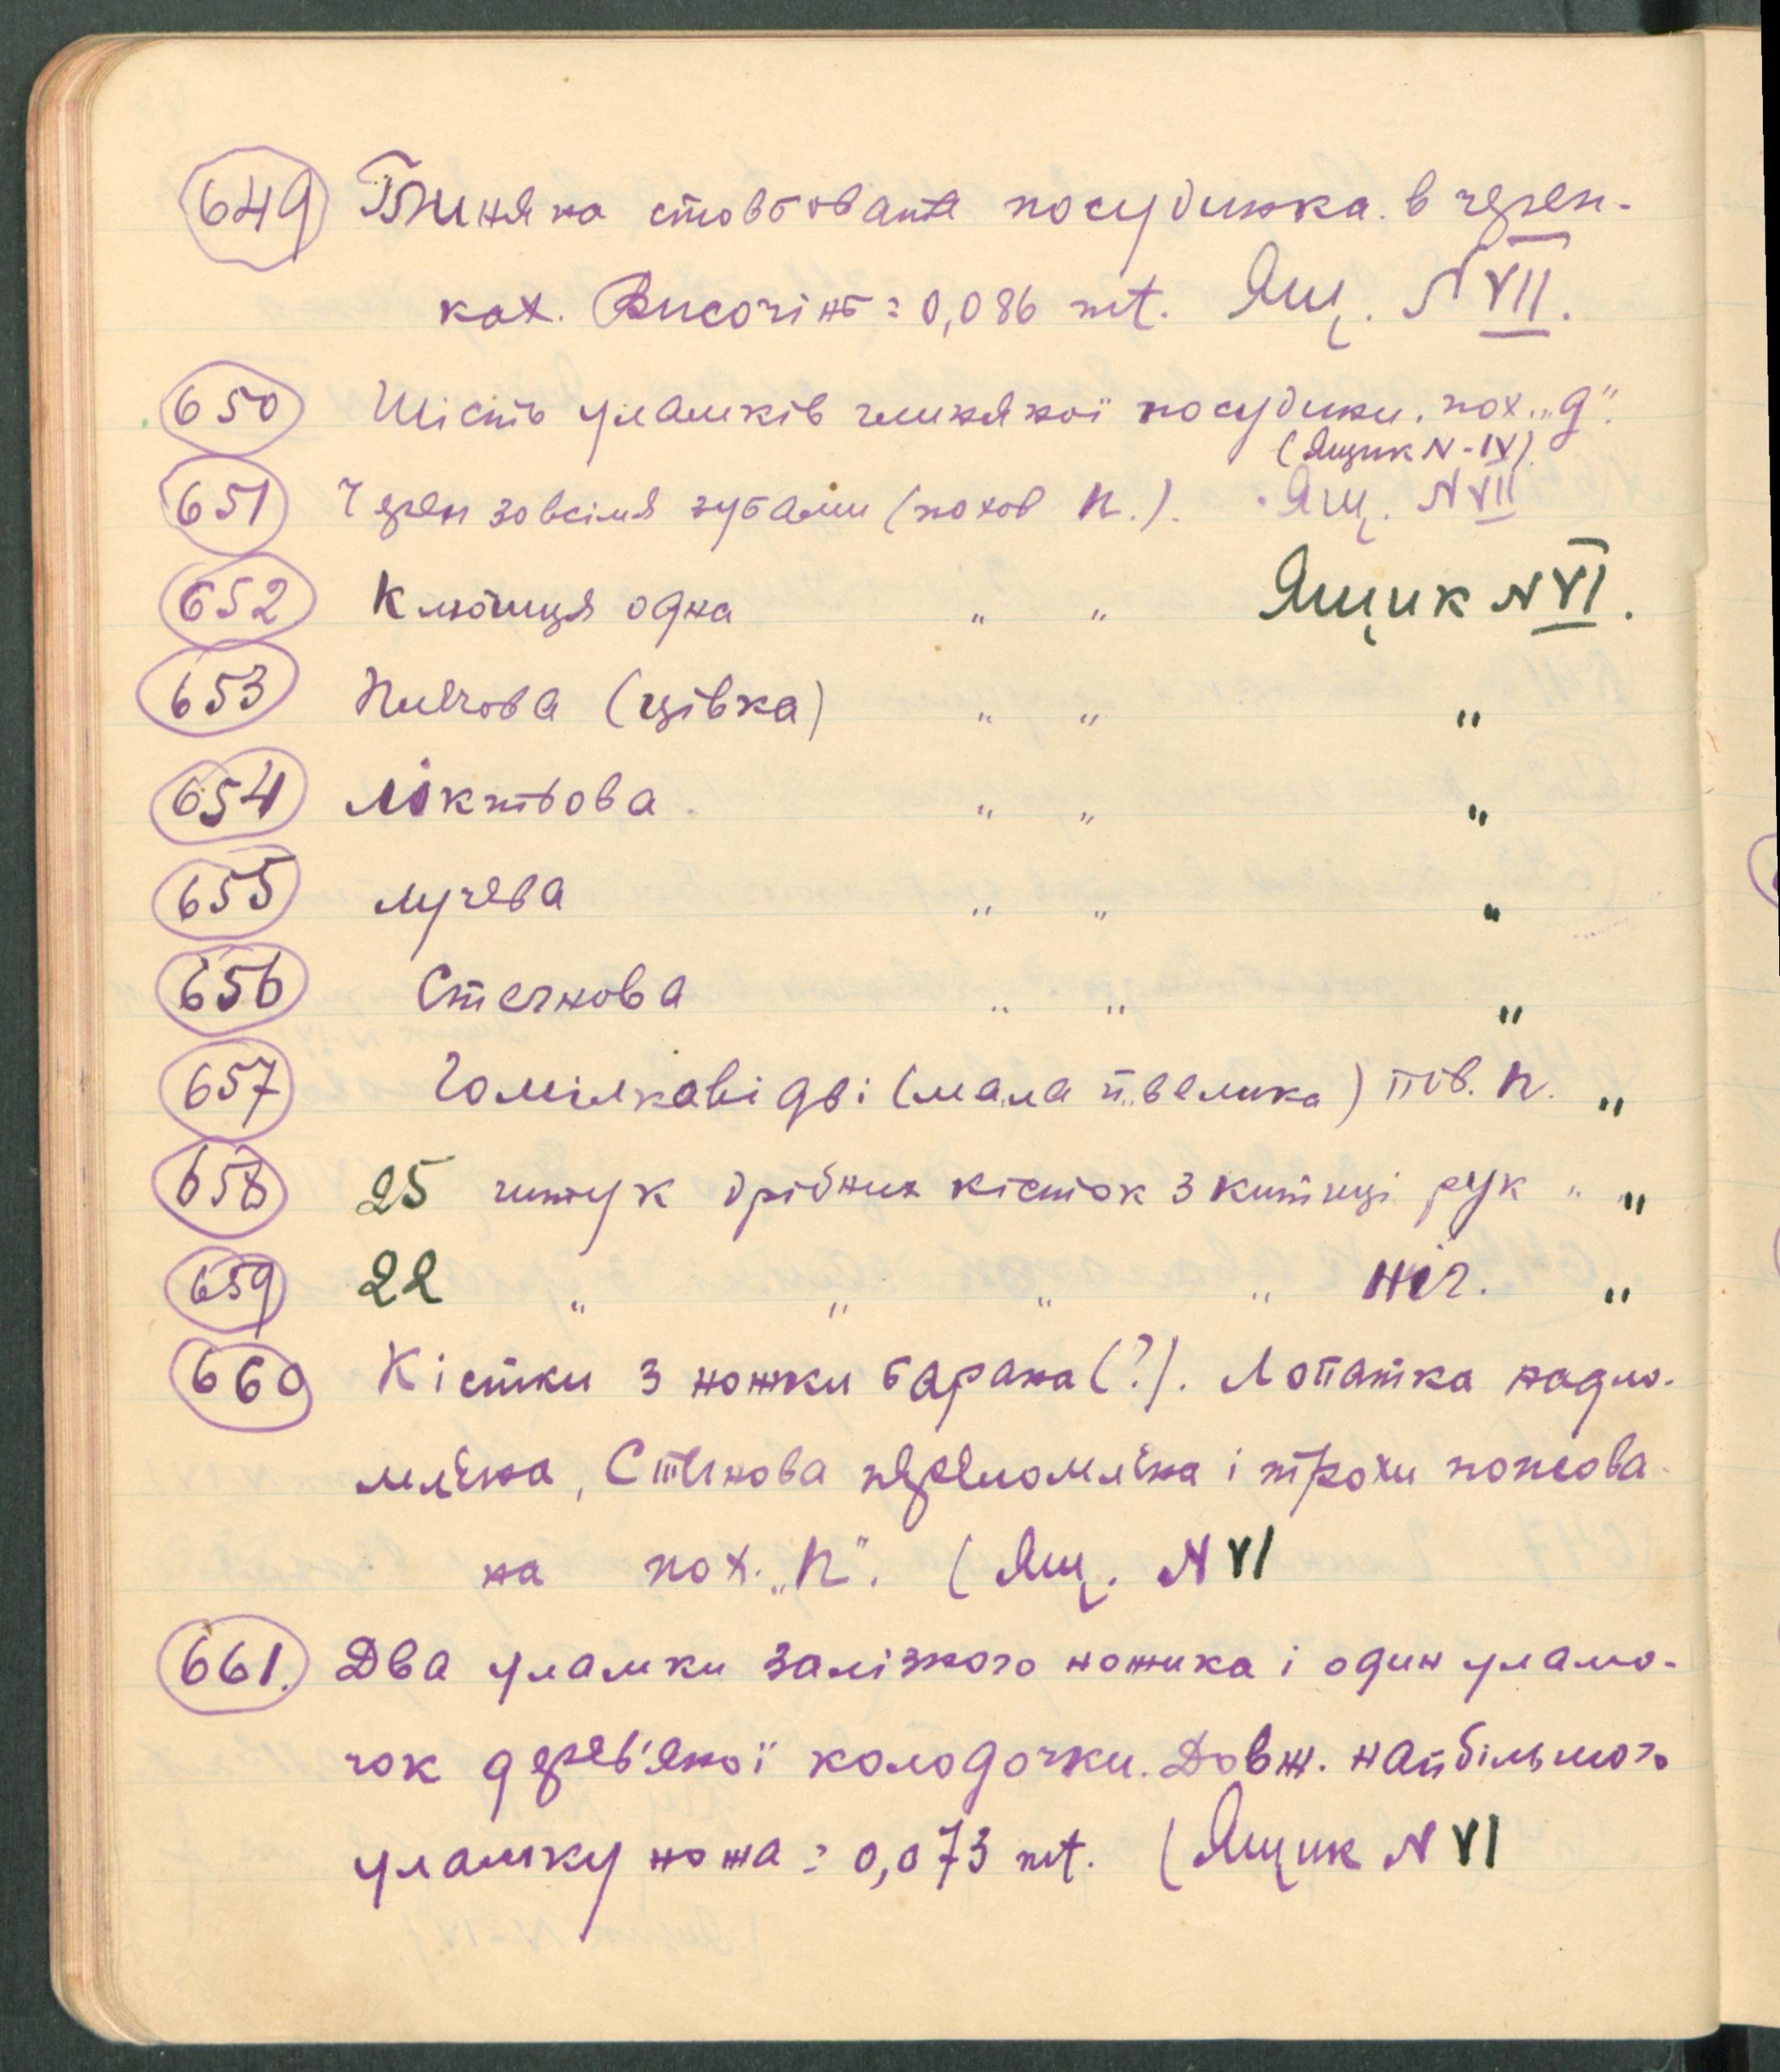 649 Глиняна стовбовата посудинка в череп-
ках. Височінь = 0,086 mt. Ящ. N VII.
650 Шість уламків глиняної посудини. пох. „д“.
(Ящик N-IV)
651 Череп зовсіма зубами (похов п.). Ящ. N VII
652 Ключиця одна " " Ящик N VI.
653 Плечова (цівка) " " "
654 Ліктьова " " "
655 лучева " " "
656 Стегнова " " "
657 Гомілкові дві (мала й велика) пов. п. "
658 25 штук дрібних кісток з китиці рук " "
659 22 " " " " ніг. "
660 Кістки з ножки барана (?). Лопатка надло-
млена, Стегнова переломлена і трохи попсова-
на пох. „п“. (Ящ. N VI
661. Два уламки залізного ножика і один уламо-
чок дерев'яної колодочки. Довж. найбільшого
уламку ножа = 0,073 mt. (Ящик N VI